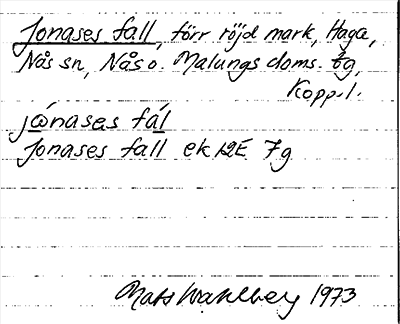 Jonases fall, förr röjd mark, Haga,
Nås sn, Nås o. Malungs doms. tg,
Kopp. l.
jωnases fal
Jonases fall ek 12E 7g
Mats Wahlberg 1973